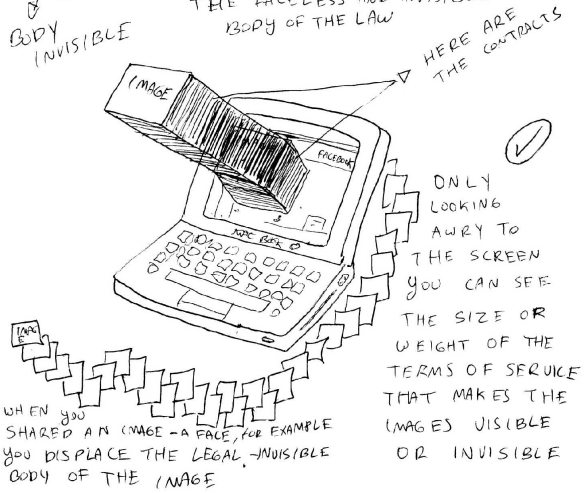 BODY
INVISIBLE
THE FACELESS AND INVISIBLE
BODY OF THE LAW
HERE ARE
THE CONTRACTS
IMAGE
FACEBOOK
MAC BOOK
ONLY
LOOKING
AWRY TO
THE SCREEN
YOU CAN SEE
THE SIZE OR
WEIGHT OF THE
TERMS OF SERVICE
THAT MAKES THE
IMAGES VISIBLE
OR INVISIBLE
IMAGE
WHEN YOU
SHARED AN IMAGE - A FACE, FOR EXAMPLE
YOU DISPLACE THE LEGAL - INVISIBLE
BODY OF THE IMAGE